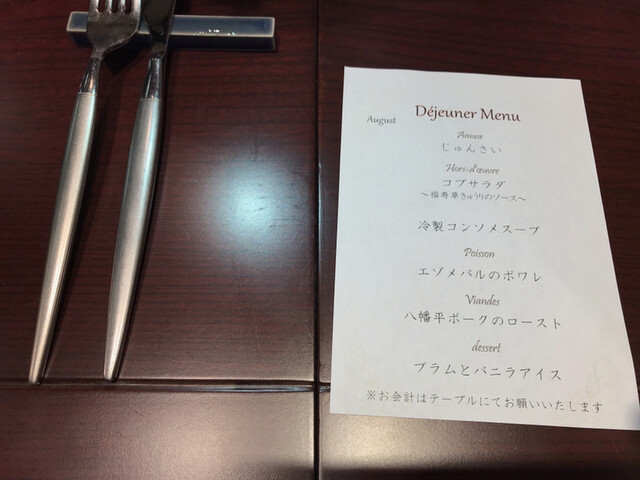 Déjeuner Menu
August
Amuse
じゅんさい
Hors-d'œuvre
コブサラダ
～福寿草きゅうりのソース～
冷製コンソメスープ
Poisson
エゾメバルのポワレ
Viandes
八幡平ポークのロースト
dessert
プラムとバニラアイス
※お会計はテーブルにてお願いいたします